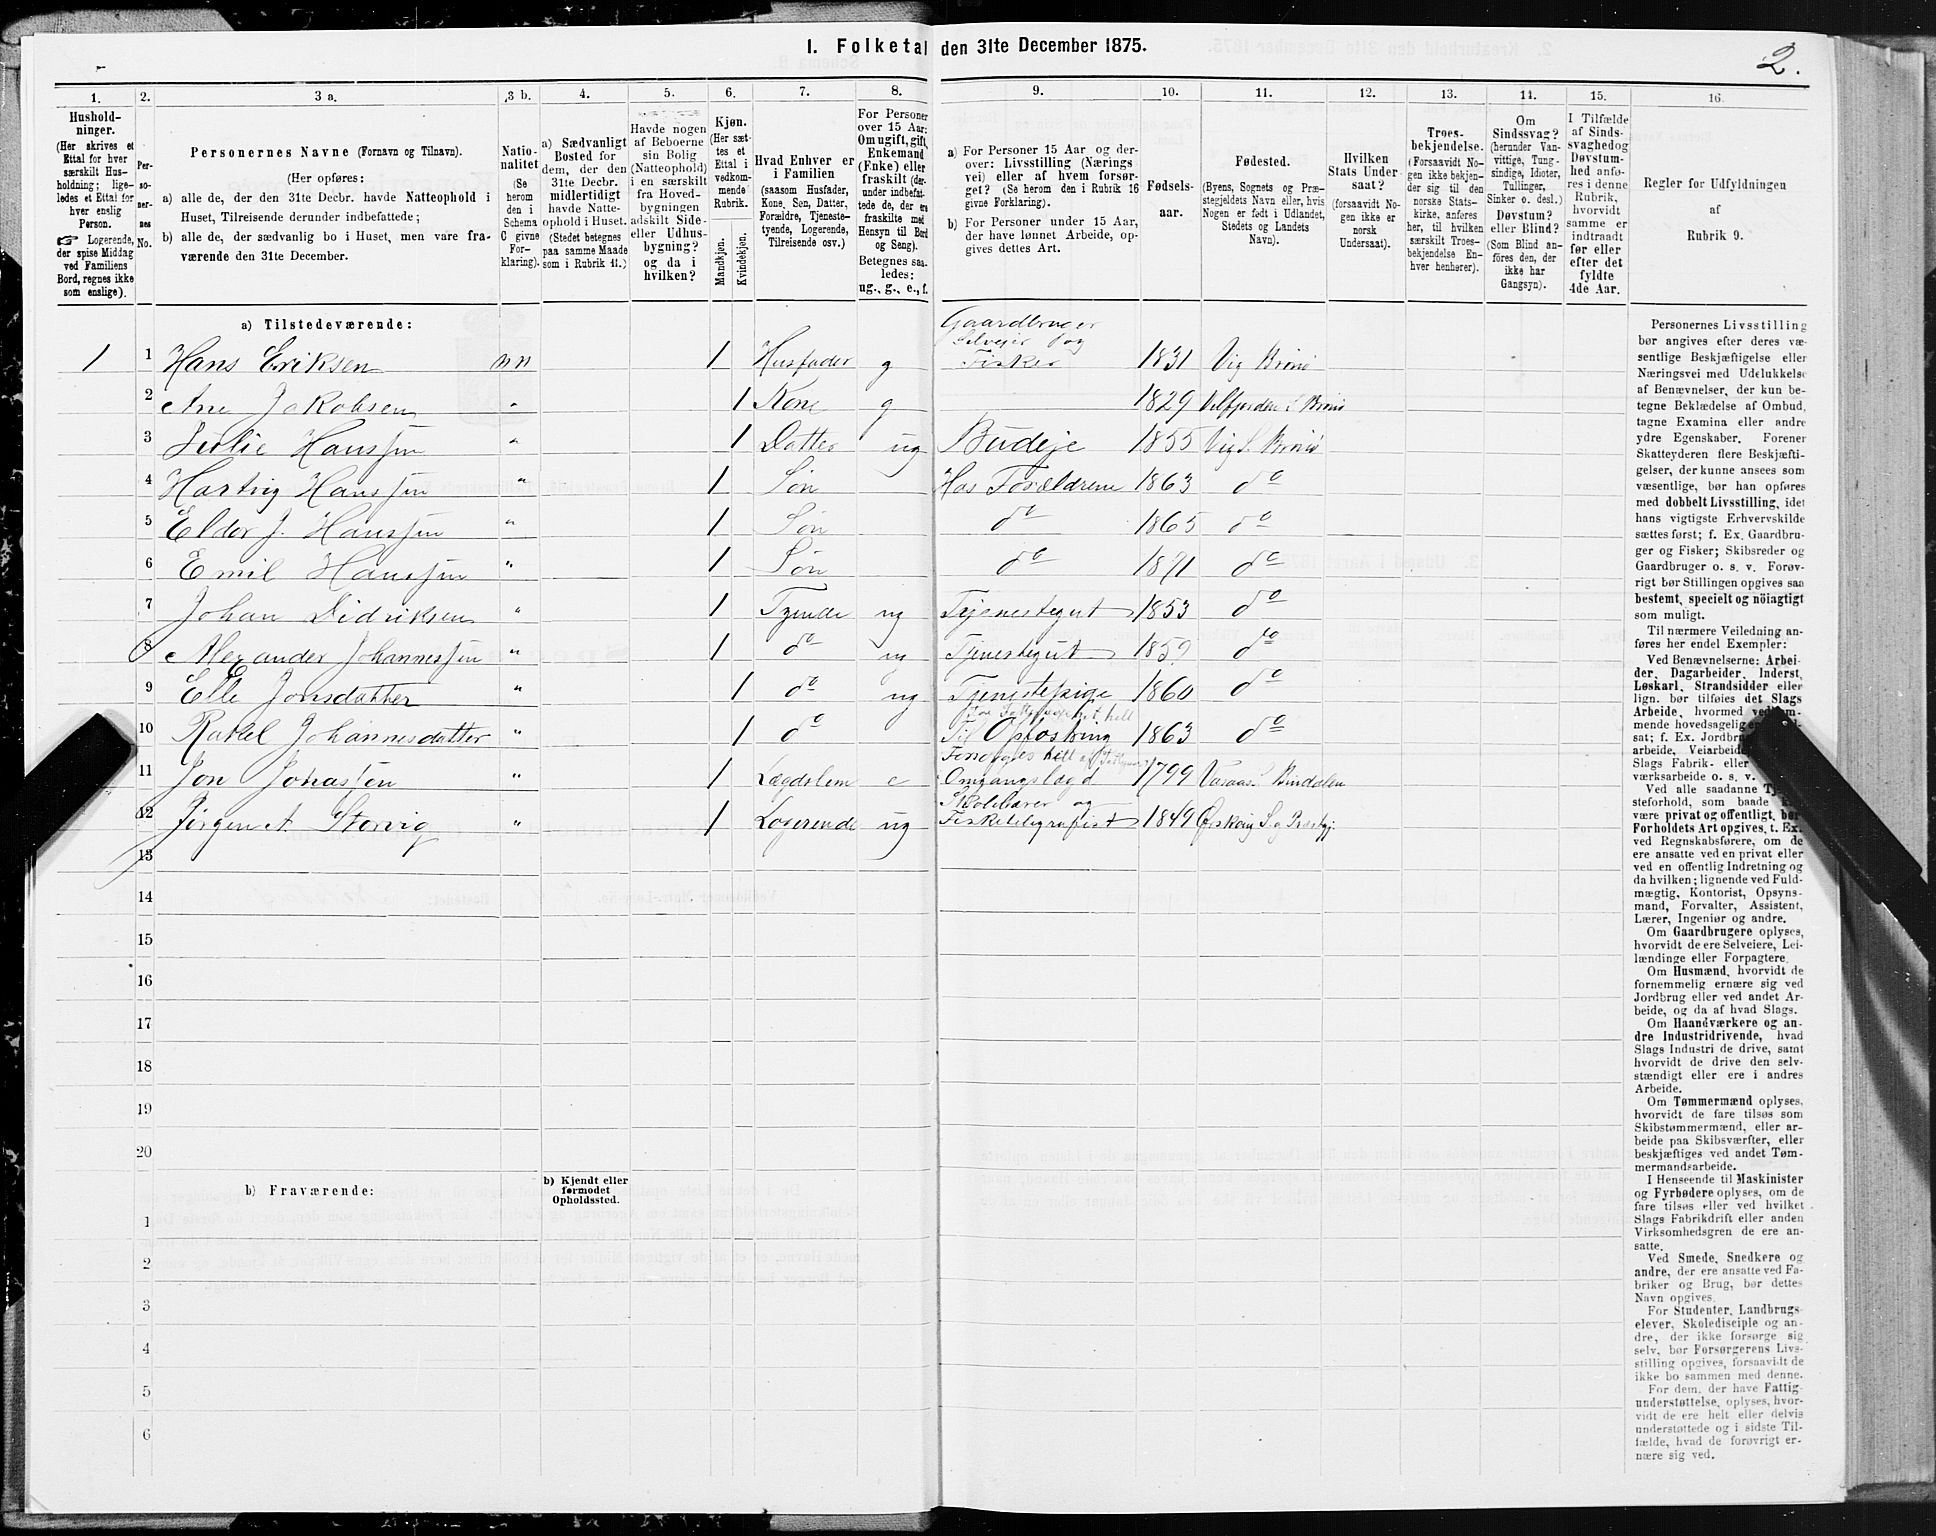 1. Folketal den 31te December 1875.
2.
1. 2. 3 a. 3 b. 4. 5. 6. 7. 8. 9. 10. 11. 12. 13. 14. 15. 16.
Hushold-
ninger.
(Her skrives et
Ettal for hver
særskilt Hus-
holdning; lige-
ledes et Ettal for
hver enslig
Person.
☞ Logerende,
der spise Middag
ved Familiens
Bord, regnes ikke
som enslige).
Per-
so-
ner-
nes
No.
Personernes Navne (Fornavn og Tilnavn).
(Her opføres:
a) alle de, der den 31te Decbr. havde Natteophold i
Huset, Tilreisende derunder indbefattede;
b) alle de, der sædvanlig bo i Huset, men vare fra-
værende den 31te December.
Natio-
nalitet
(Se
herom
den i
Schema
C givne
For-
klaring).
a) Sædvanligt
Bosted for
dem, der den
31te Decbr.
midlertidigt
havde Natte-
ophold i Huset.
(Stedet betegnes
paa samme Maade
som i Rubrik 11.)
Havde nogen
af Beboerne
sin Bolig
(Natteophold)
i en særskilt
fra Hoved-
bygningen
adskilt Side-
eller Udhus-
bygning?
og da i
hvilken?
Kjøn.
(Her sæt-
tes et
Ettal i
vedkom-
mende
Rubrik.
Mandkjøn.
Kvindekjøn.
Hvad Enhver er
i Familien
(saasom Husfader,
Kone, Søn, Datter,
Forældre, Tjeneste-
tyende, Logerende,
Tilreisende osv.)
For Personer
over 15 Aar:
Om ugift, gift,
Enkemand
(Enke) eller
fraskilt (der-
under indbefat-
tede de, der ere
fraskilte med
Hensyn til Bord
og Seng).
Betegnes saa-
ledes:
ug., g., e., f.
a) For Personer 15 Aar og der-
over: Livsstilling (Nærings-
vei) eller af hvem forsør-
get? (Se herom den i Rubrik 16
givne Forklaring).
b) For Personer under 15 Aar,
der have lønnet Arbeide, op-
gives dettes Art.
Fødsels-
aar.
Fødested.
(Byens, Sognets og Præ-
stegjeldets Navn eller, hvis
Nogen er født i Udlandet,
Stedets og Landets
Navn).
Hvilken
Stats Under-
saat?
(forsaavidt No-
gen ikke er
norsk
Undersaat).
Troes-
bekjendelse.
(Forsaavidt No-
gen ikke bekjen-
der sig til den
norske Stats-
kirke, anføres
her, til hvilken
særskilt Troes-
bekjendelse En-
hver henhører).
Om
Sindssvag?
(herunder Van-
vittige, Tung-
sindige, Idioter,
Tullinger,
Sinker o. desl.)
Døvstum?
eller Blind?
(Som Blind an-
føres den, der
ikke har
Gangsyn).
I Tilfælde
af Sinds-
svaghed og
Døvstum-
hed anfø-
res i denne
Rubrik,
hvorvidt
samme er
indtraadt
før eller
efter det
fyldte
4de Aar.
Regler for Udfyldningen
af
Rubrik 9.
a) Tilstedeværende:
Gaardbruger
Selveier og
1 1 Hans Eriksen nn 1 Husfader g Fisker 1831 Vig Brønø
2 Ane Jakobsen " 1 Kone g 1829 Velfjorden i Brønø
3 Julie Hanssen " 1 Datter ug Budeje 1855 Vig S. Brønø
4 Hartvig Hanssen " 1 Søn Hos Forældrene 1863 do
5 Eldor J. Hanssen " 1 Søn do 1865 do
6 Emil Hanssen " 1 Søn do 1871 do
7 Johan Didriksen " 1 Tyende ug Tjenestegut 1853 do
8 Alexander Johannessen " 1 do ug Tjenestegut 1859 do
9 Elle Jonsdatter " 1 do ug Tjenestepige 1860 do
10 Rakel Johannesdatter " 1 do Til Opfostring 1863 do
11 Jon Jonassen " 1 Lægdslem e Omgangslægd 1799 Bindalen
Skolelærer og
12 Jørgen A Storvig " 1 Logerende ug Fisketelegrafist 1849 Ørskoug S. og Præstgj.
13
14
15
16
17
18
19
20
b) Fraværende:
b) Kjendt eller
formodet
Opholdssted.
1
2
3
4
5
6
Personernes Livsstilling
bør angives efter deres væ-
sentlige Beskjæftigelse eller
Næringsvei med Udelukkelse
af Benævnelser, der kun be-
tegne Beklædelse af Ombud,
tagne Examina eller andre
ydre Egenskaber. Forener
Skatteyderen flere Beskjæfti-
gelser, der kunne ansees som
væsentlige, bør han opføres
med dobbelt Livsstilling, idet
hans vigtigste Erhvervskilde
sættes først; f. Ex. Gaardbru-
ger og Fisker; Skibsreder og
Gaardbruger o. s. v. Forøv-
rigt bør Stillingen opgives saa
bestemt, specielt og nöiagtigt
som muligt.
Til nærmere Veiledning an-
føres her endel Exempler:
Ved Benævnelserne: Arbei-
der, Dagarbeider, Inderst,
Løskarl, Strandsidder eller
lign. bør tilføies det Slags
Arbeide, hvormed
mende hovedsagelig
sat; f. Ex. Jordbr
arbeide, Veiarbeide
Slags Fabrik- eller
værksarbeide o. s. v.
Ved alle saadanne
steforhold, som baade
være privat og offentligt, bør
Forholdets Art opgives, t. Ex.
ved Regnskabsførere, om de
ere ansatte ved en privat eller
ved en offentlig Indretning og
da hvilken; lignende ved Fuld-
mægtig, Kontorist, Opsyns-
mand, Forvalter, Assistent,
Lærer, Ingeniør og andre.
Om Gaardbrugere oplyses,
hvorvidt de ere Selveiere, Lei-
lændinge eller Forpagtere.
Om Husmænd, hvorvidt de
fornemmelig ernære sig ved
Jordbrug eller ved andet Ar-
beide, og da af hvad Slags.
Om Haandværkere og an-
dre Industridrivende, hvad
Slags Industri de drive, samt
hvorvidt de drive den selv-
stændigt eller ere i andres
Arbeide.
Om Tømmermænd oplyses,
hvorvidt de fare tilsøs som
Skibstømmermænd, eller ar-
beide paa Skibsværfter, eller
beskjæftiges ved andet Tøm-
mermandsarbeide.
I Henseende til Maskinister
og Fyrbødere oplyses, om de
fare tilsøs eller ved hvilket
Slags Fabrikdrift eller anden
Virksomhedsgren de ere an-
satte.
Ved Smede, Snedkere og
andre, der ere ansatte ved Fa-
briker og Brug, bør dettes
Navn opgives.
For Studenter, Landbrugs-
elever, Skoledisciple og an-
dre, der ikke forsørge sig
selv, bør Forsørgerens Livs-
stilling opgives, forsaavidt de
ikke bo sammen med denne.
For dem, der have Fattig-
understøttelse, oplyses, hvor-
vidt de ere helt eller delvis
understøttede og i sidste Til-
fælde, hvad de forøvrigt er-
nære sig ved.